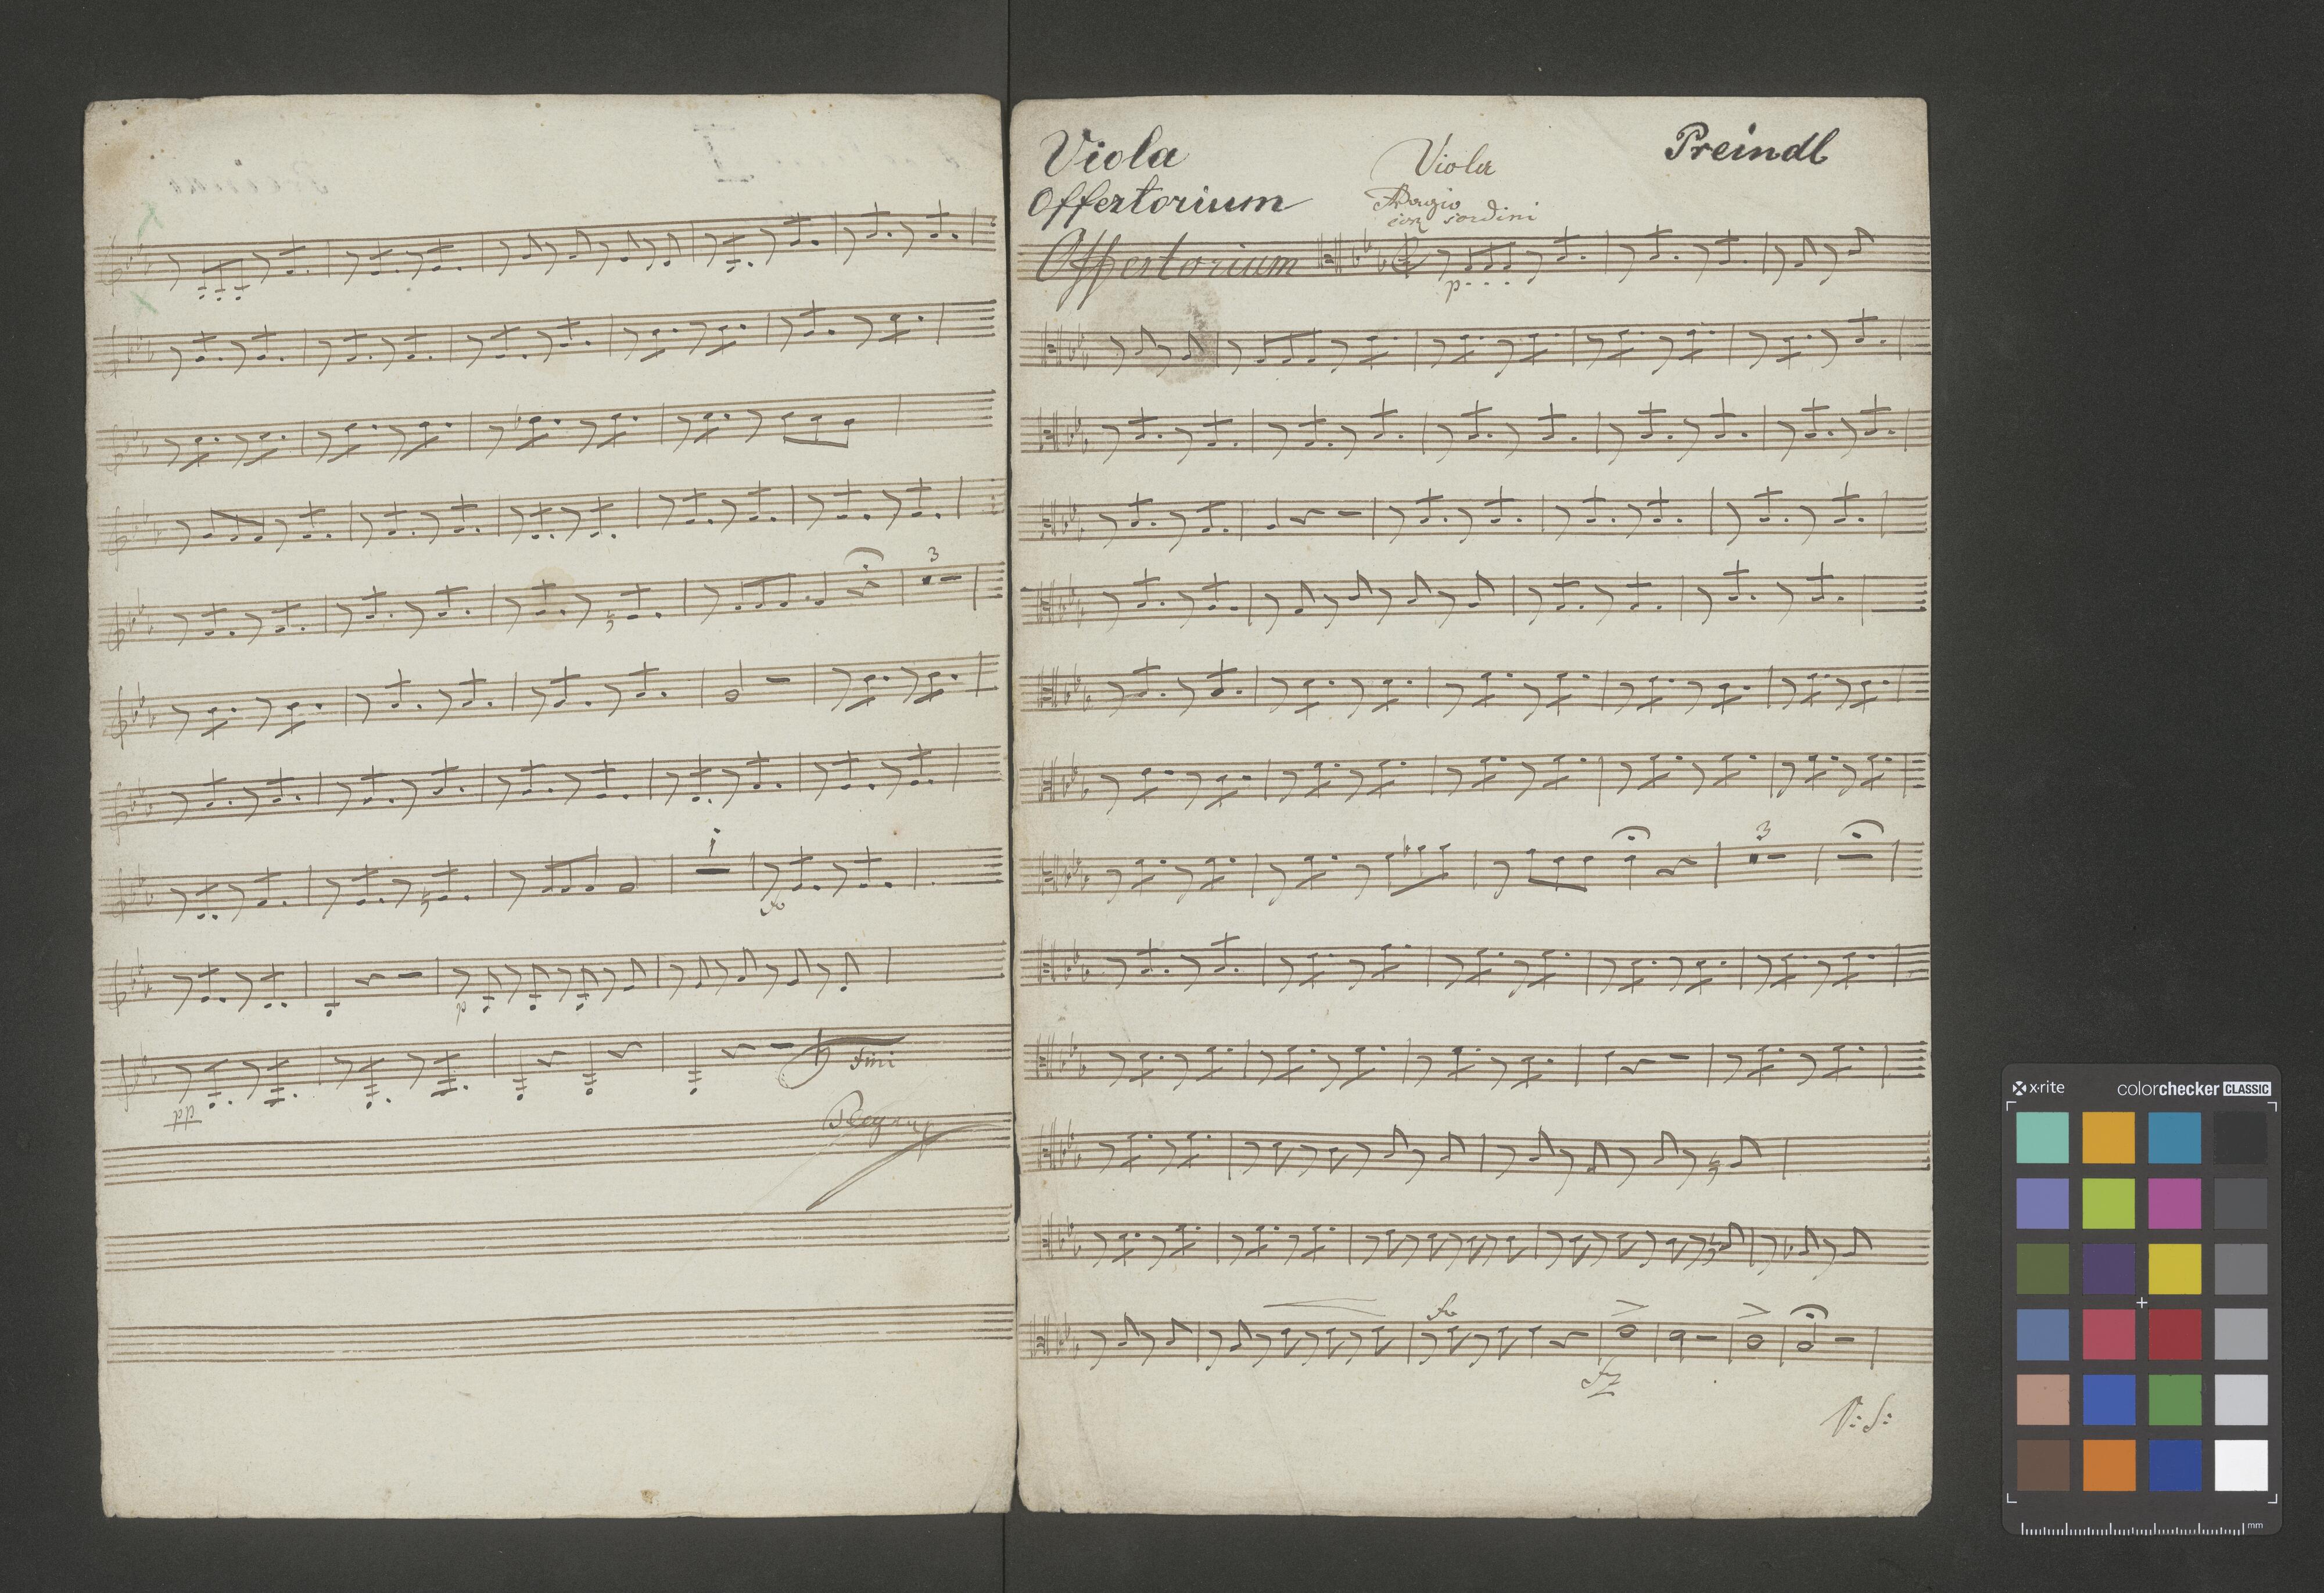 3
i
fo
p
pp
Fini
Viola
Offertorium
Viola
Adagio
con sordini
Preindl
Offertorium
p
3
fo
fz
V: S:
x-rite
colorchecker CLASSIC
mm